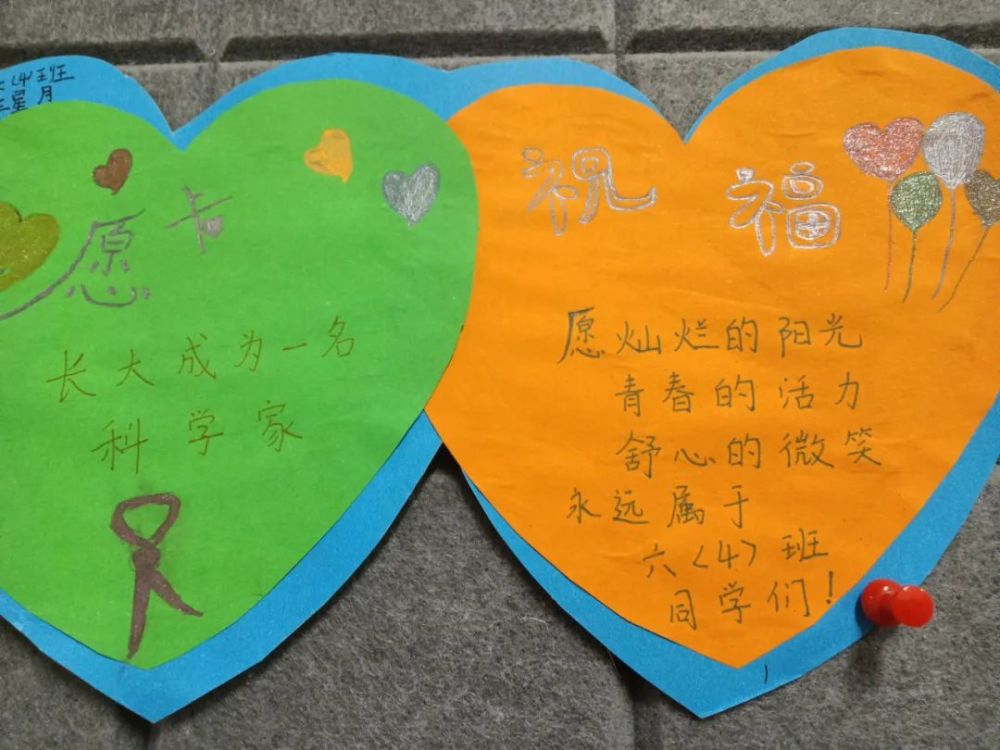 (4)班
星月
愿卡
长大成为一名
科学家
祝福
愿灿烂的阳光
青春的活力
舒心的微笑
永远属于
六(4)班
同学们!